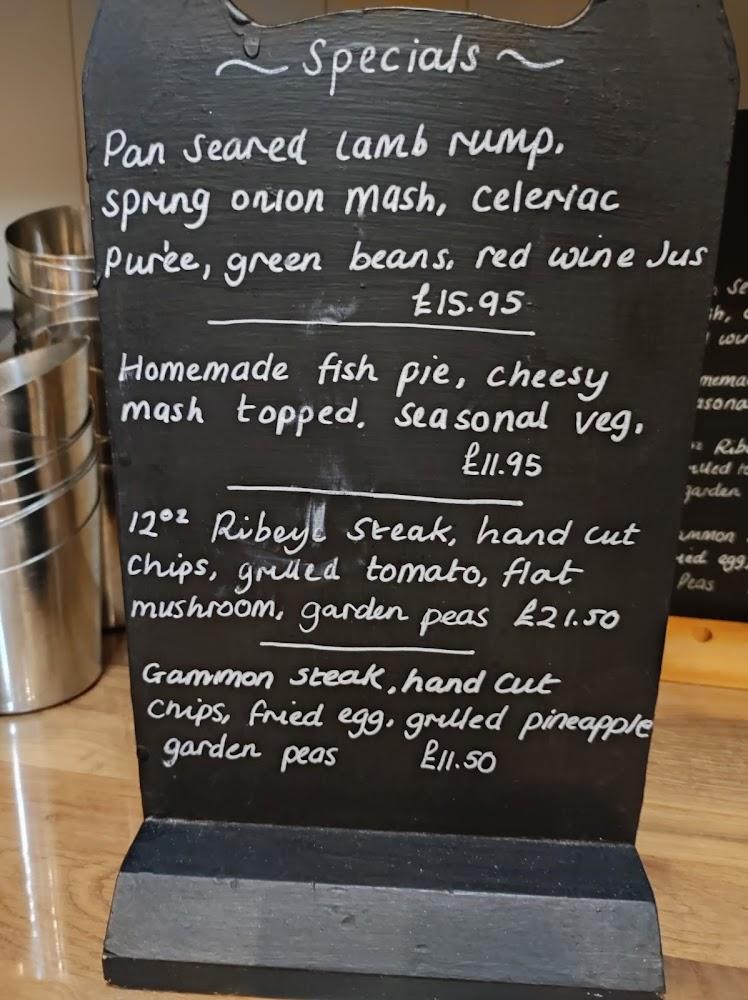 ~ Specials ~
Pan seared lamb rump,
spring onion mash, celeriac
purée, green beans, red wine jus
£15.95
Homemade fish pie, cheesy
mash topped. seasonal veg.
£11.95
12oz Ribeye steak, hand cut
chips, grilled tomato, flat
mushroom, garden peas £21.50
Gammon steak, hand cut
chips, fried egg, grilled pineapple
garden peas £11.50